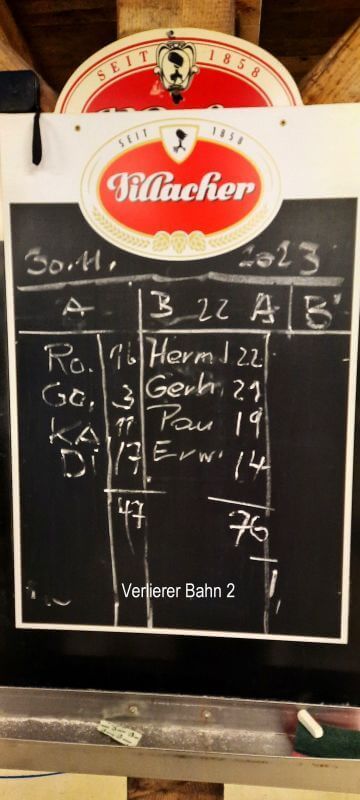 SEIT 1858
SEIT 1858
Villacher
30.11. 2023
A B 22 A B
Ro. 16 Herm 22
Go. 3 Gerh. 21
KA 11 Pau 19
Di 17 Erw. 14
47 76
Verlierer Bahn 2